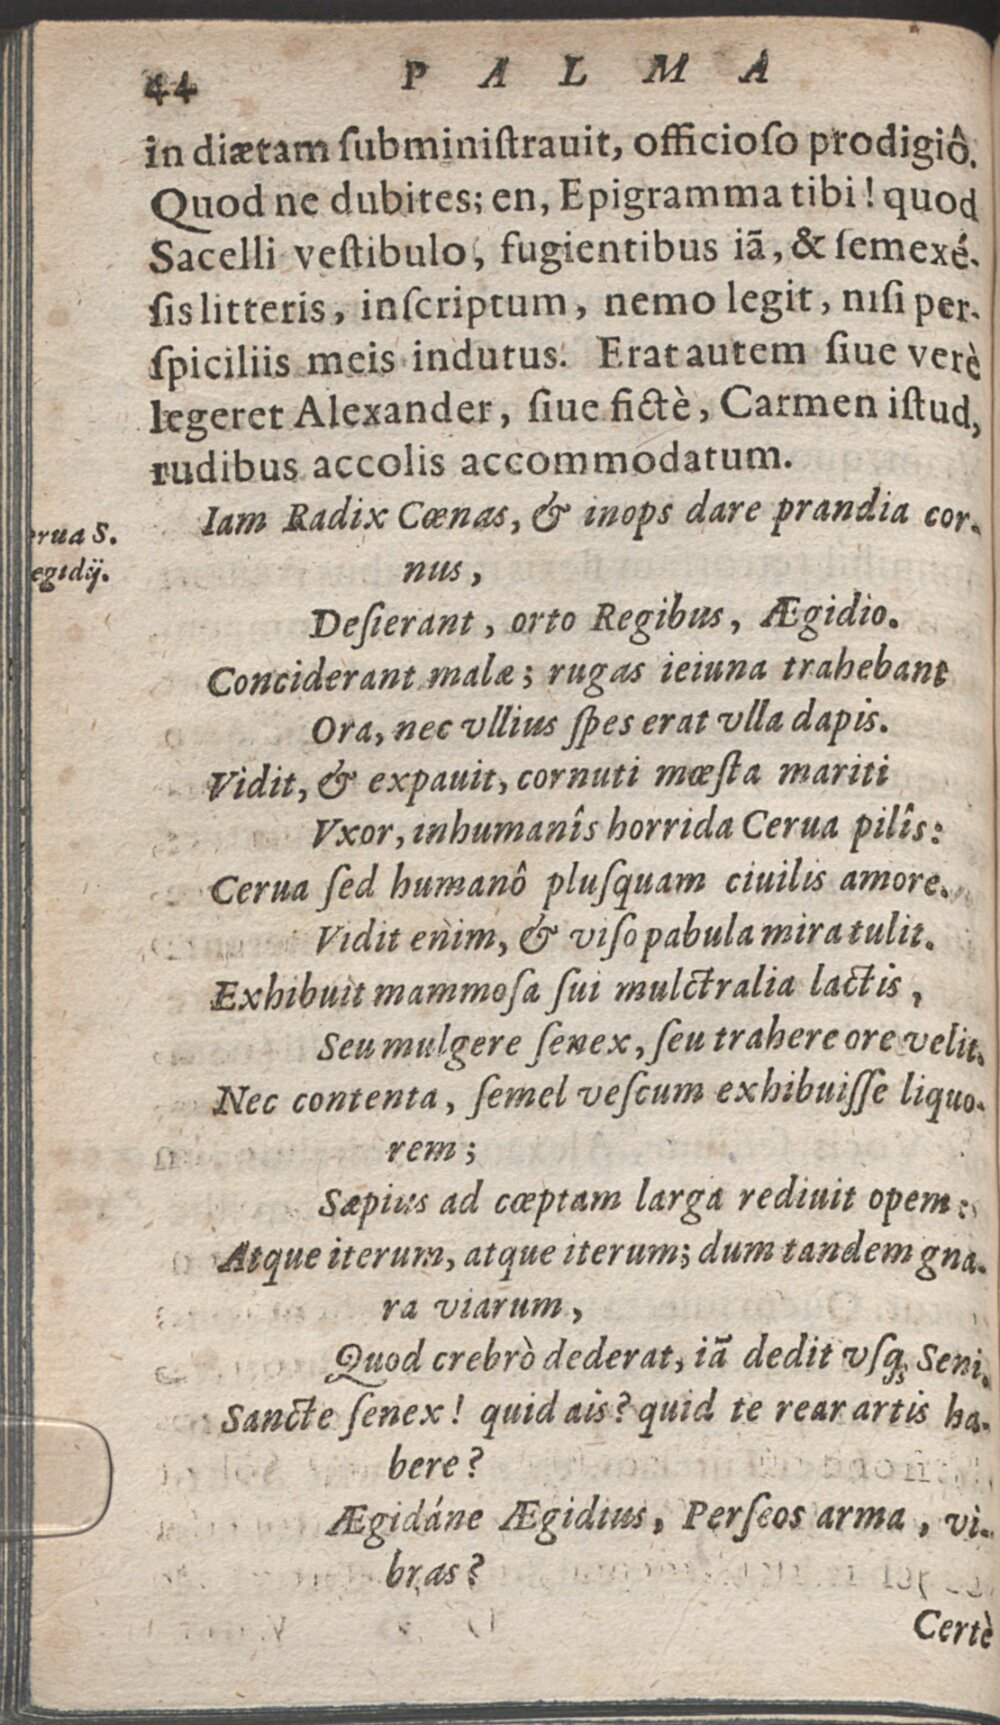 44 PALMA
in diætam ſubminiſtrauit, officioſo prodigiô.
Quod ne dubites; en, Epigramma tibi! quod
Sacelli veſtibulo, fugientibus iã, & ſemexé-
ſis litteris, inſcriptum, nemo legit, niſi per-
ſpiciliis meis indutus. Erat autem ſiue verè
legeret Alexander, ſiue fictè, Carmen iſtud,
rudibus accolis accommodatum.
erua S.
egidij.
Iam Radix Cœnas, & inops dare prandia cor-
nus,
Deſierant, orto Regibus, Ægidio.
Conciderant malæ; rugas ieiuna trahebant
Ora, nec vllius ſpes erat vlla dapis.
Vidit, & expauit, cornuti mœſta mariti
Vxor, inhumanîs horrida Cerua pilîs:
Cerua ſed humanô pluſquam ciuilis amore.
Vidit enim, & viſo pabula mira tulit.
Exhibuit mammoſa ſui mulctralia lactis,
Seu mulgere ſenex, ſeu trahere ore velit.
Nec contenta, ſemel veſcum exhibuiſſe liquo-
rem;
Sæpius ad cœptam larga rediuit opem:
Atque iterum, atque iterum; dum tandem gna-
ra viarum,
Quod crebrò dederat, iã dedit vſq; Seni.
Sancte ſenex! quid ais? quid te rear artis ha-
bere?
Ægidáne Ægidius, Perſeos arma, vi-
bras?
Certè